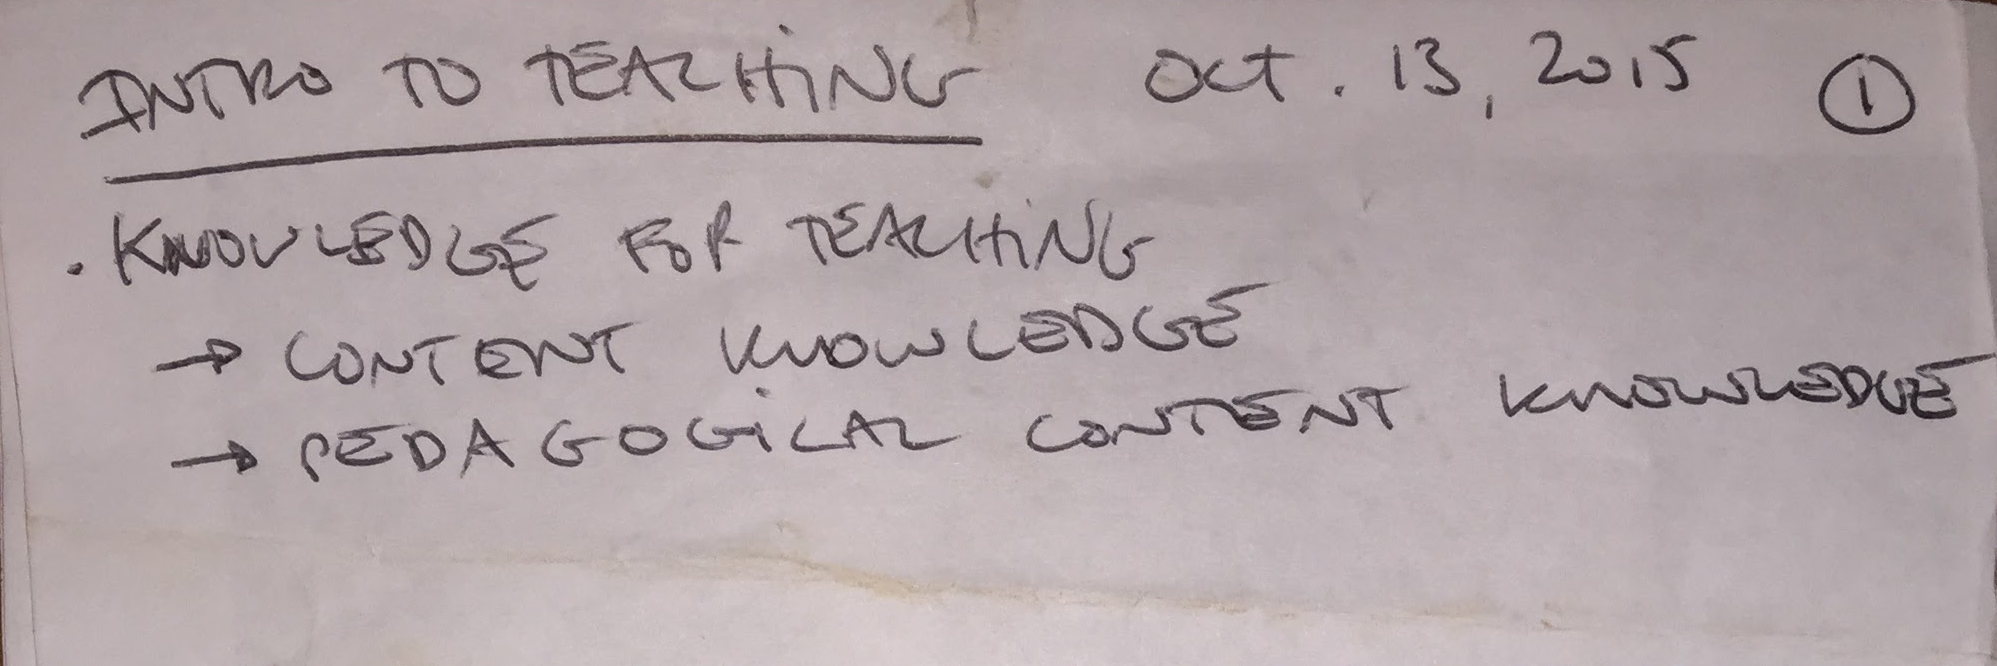 INTRO TO TEACHING OCT. 13, 2015 ①
. KNOWLEDGE FOR TEACHING
→ CONTENT KNOWLEDGE
→ PEDAGOGICAL CONTENT KNOWLEDGE